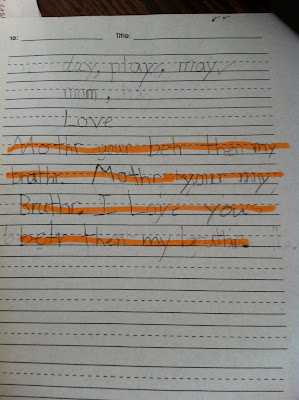 Title:
day, play, may
mom,
Love
Mothr your betr then my
brathr. Mothr your my
Bruthr. I Love you
betr then my bruthr.